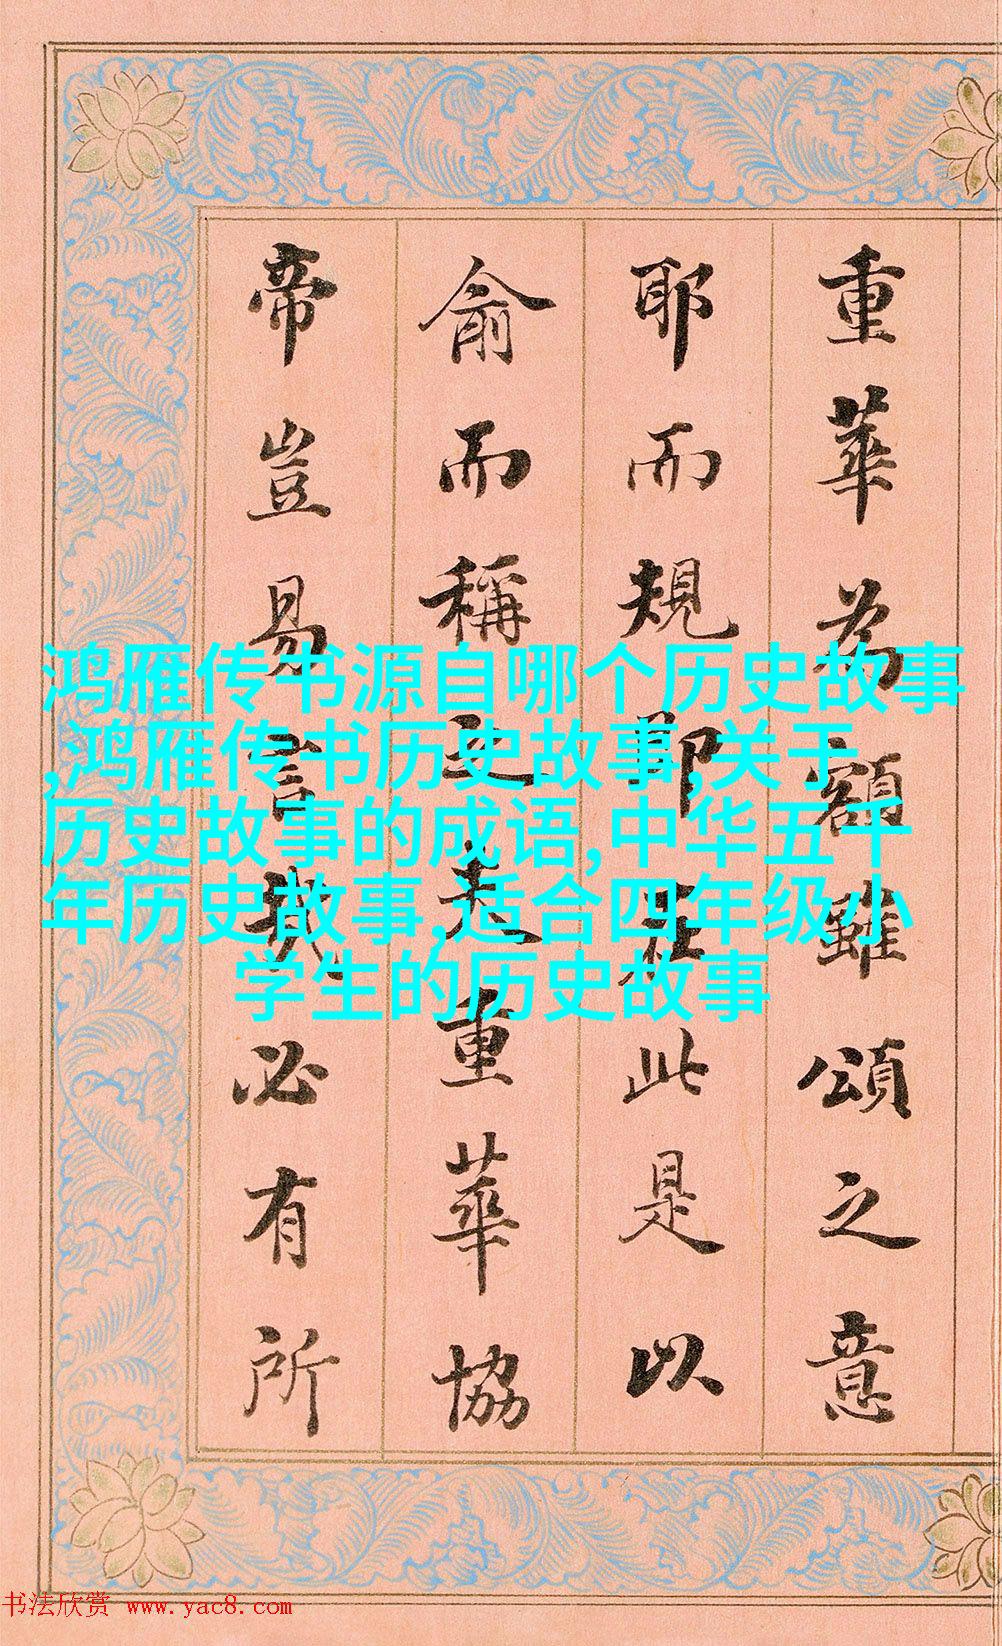 重華為額雖頌之意
耶而規即在此是以
俞而稱之夫重華協
帝豈易言哉必有所
鸿雁传书源自哪个历史故事
,鸿雁传书历史故事,关于
历史故事的成语,中华五千
年历史故事,适合四年级小
学生的历史故事
书法欣赏 www.yac8.com